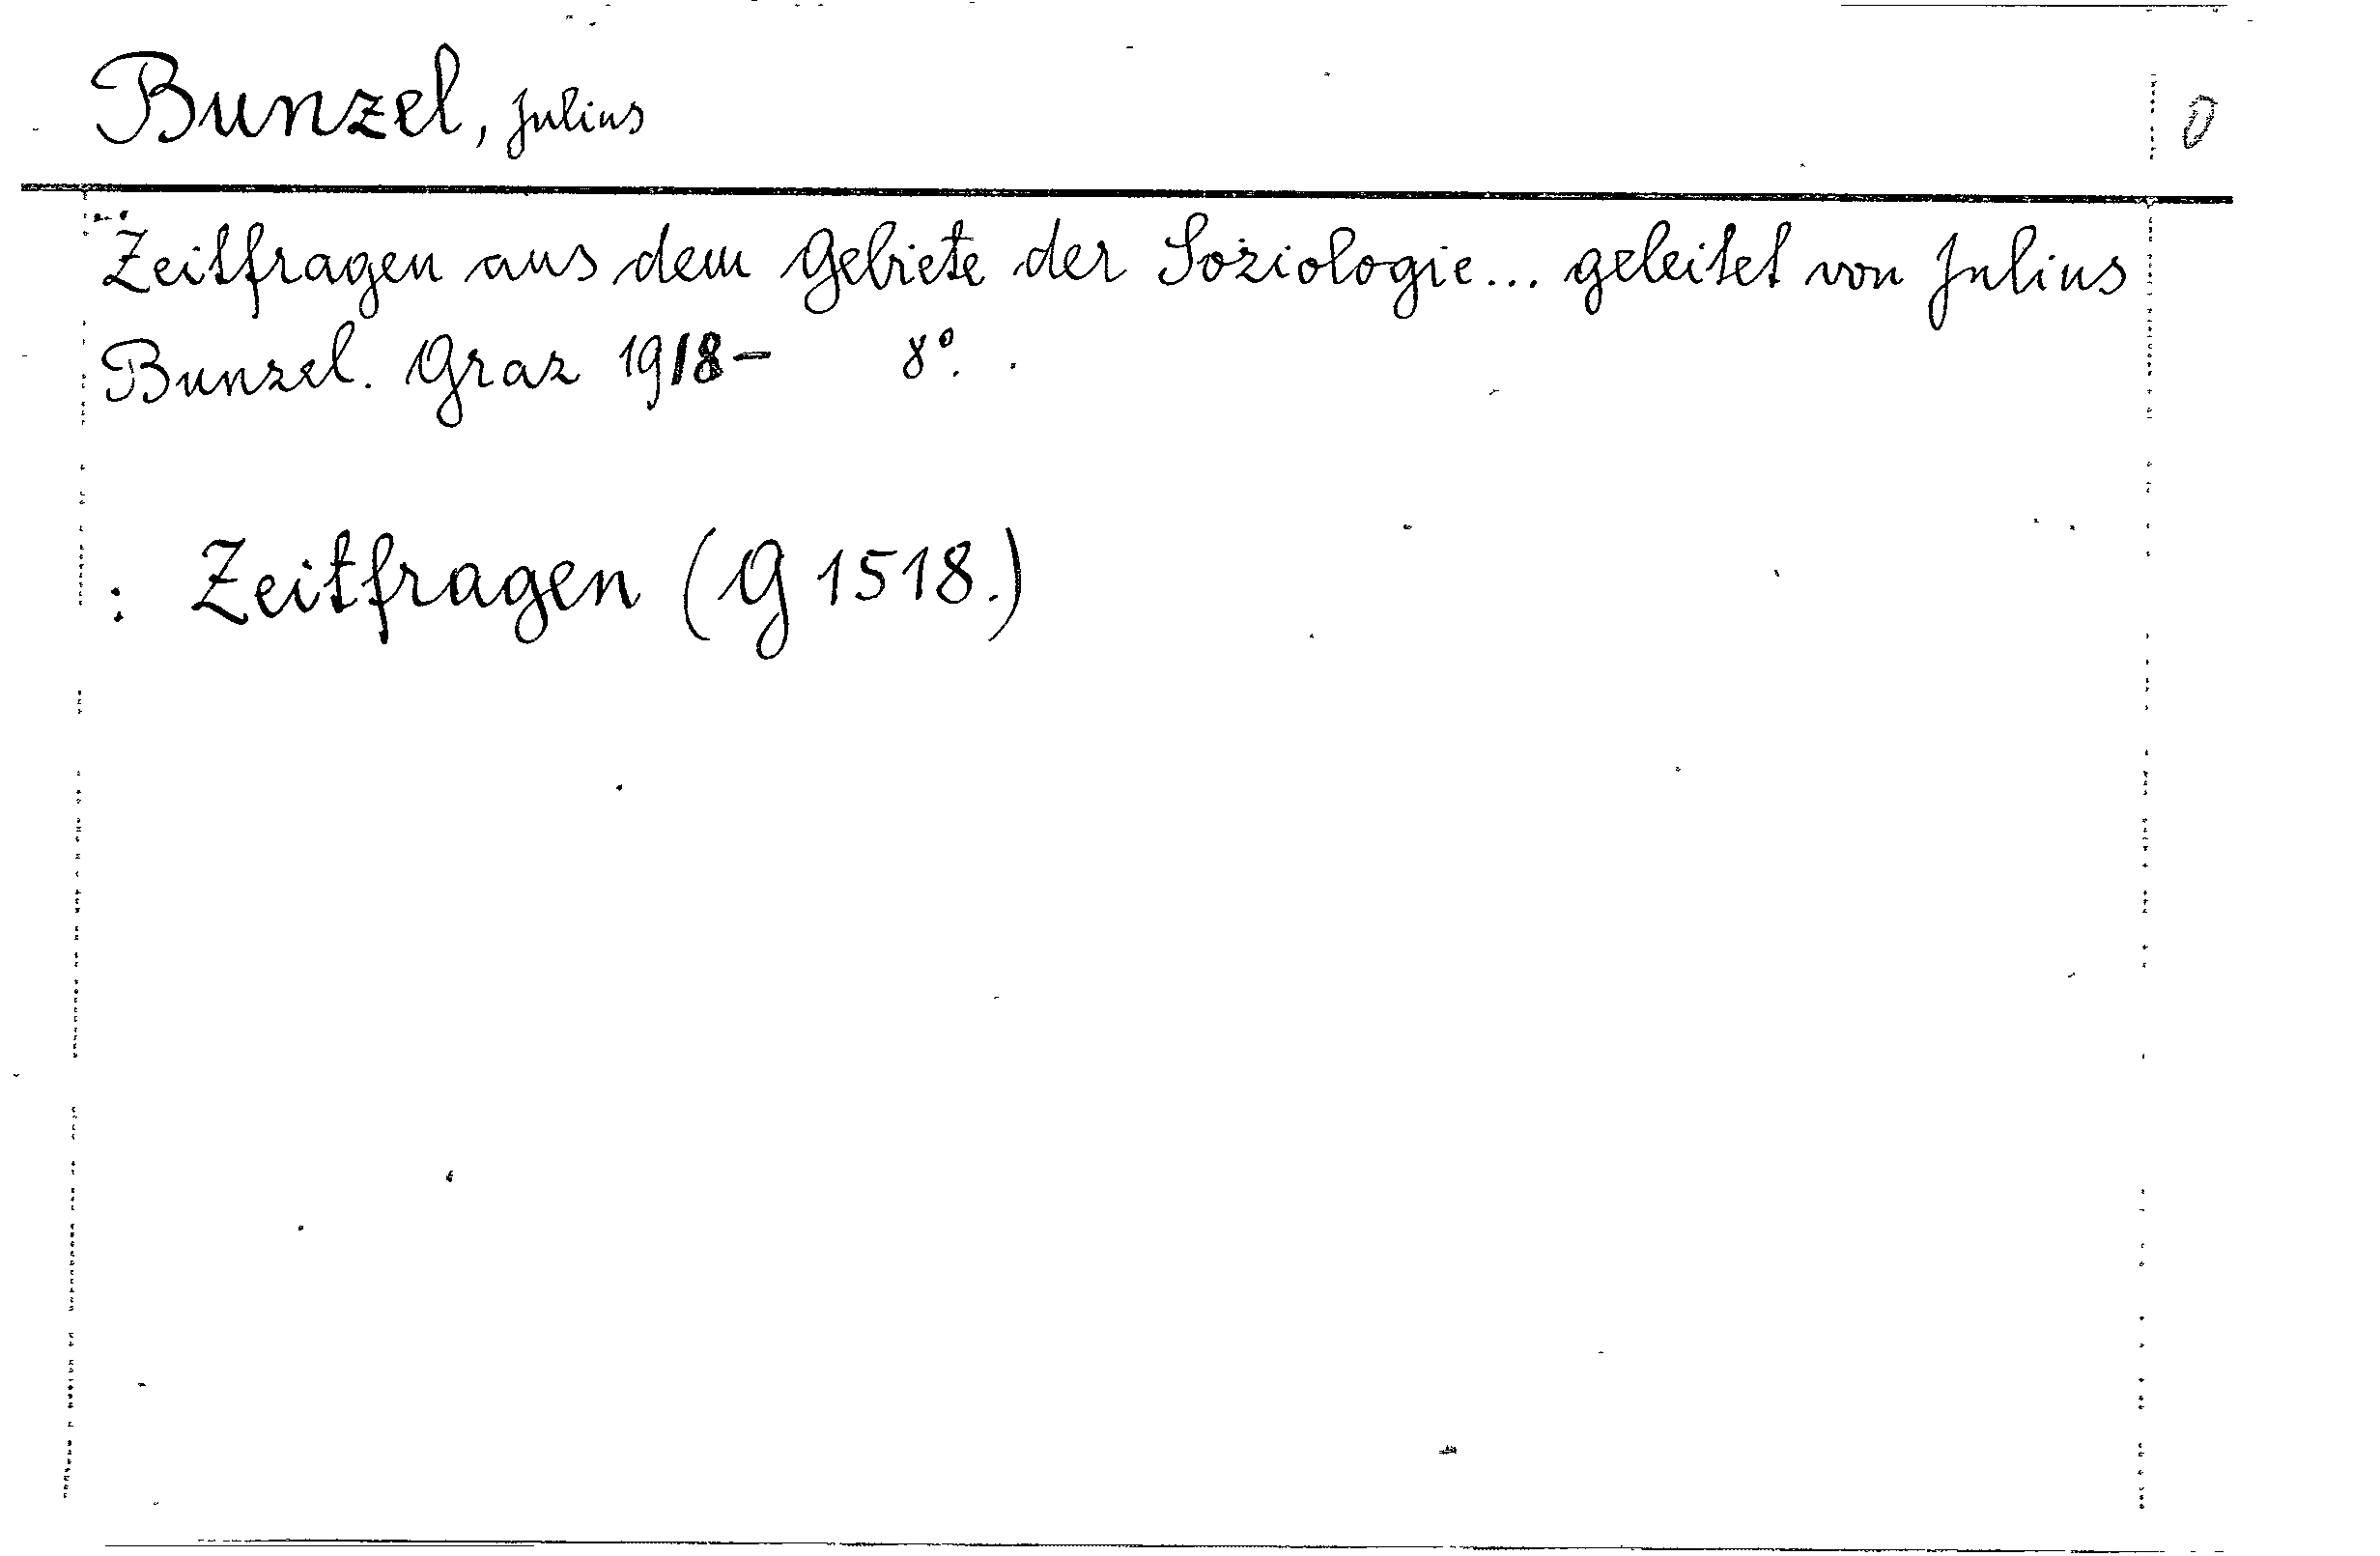 Bunzel, Julius
0
Zeitfragen aus dem Gebiete der Soziologie... geleitet von Julius
Bunzel. Graz 1918- 8°.
: Zeitfragen (G 1518.)